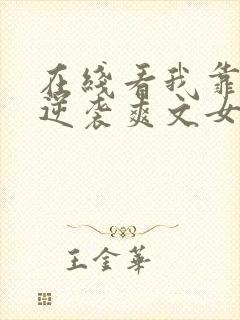 在线看我靠
逆袭爽文女
王金華